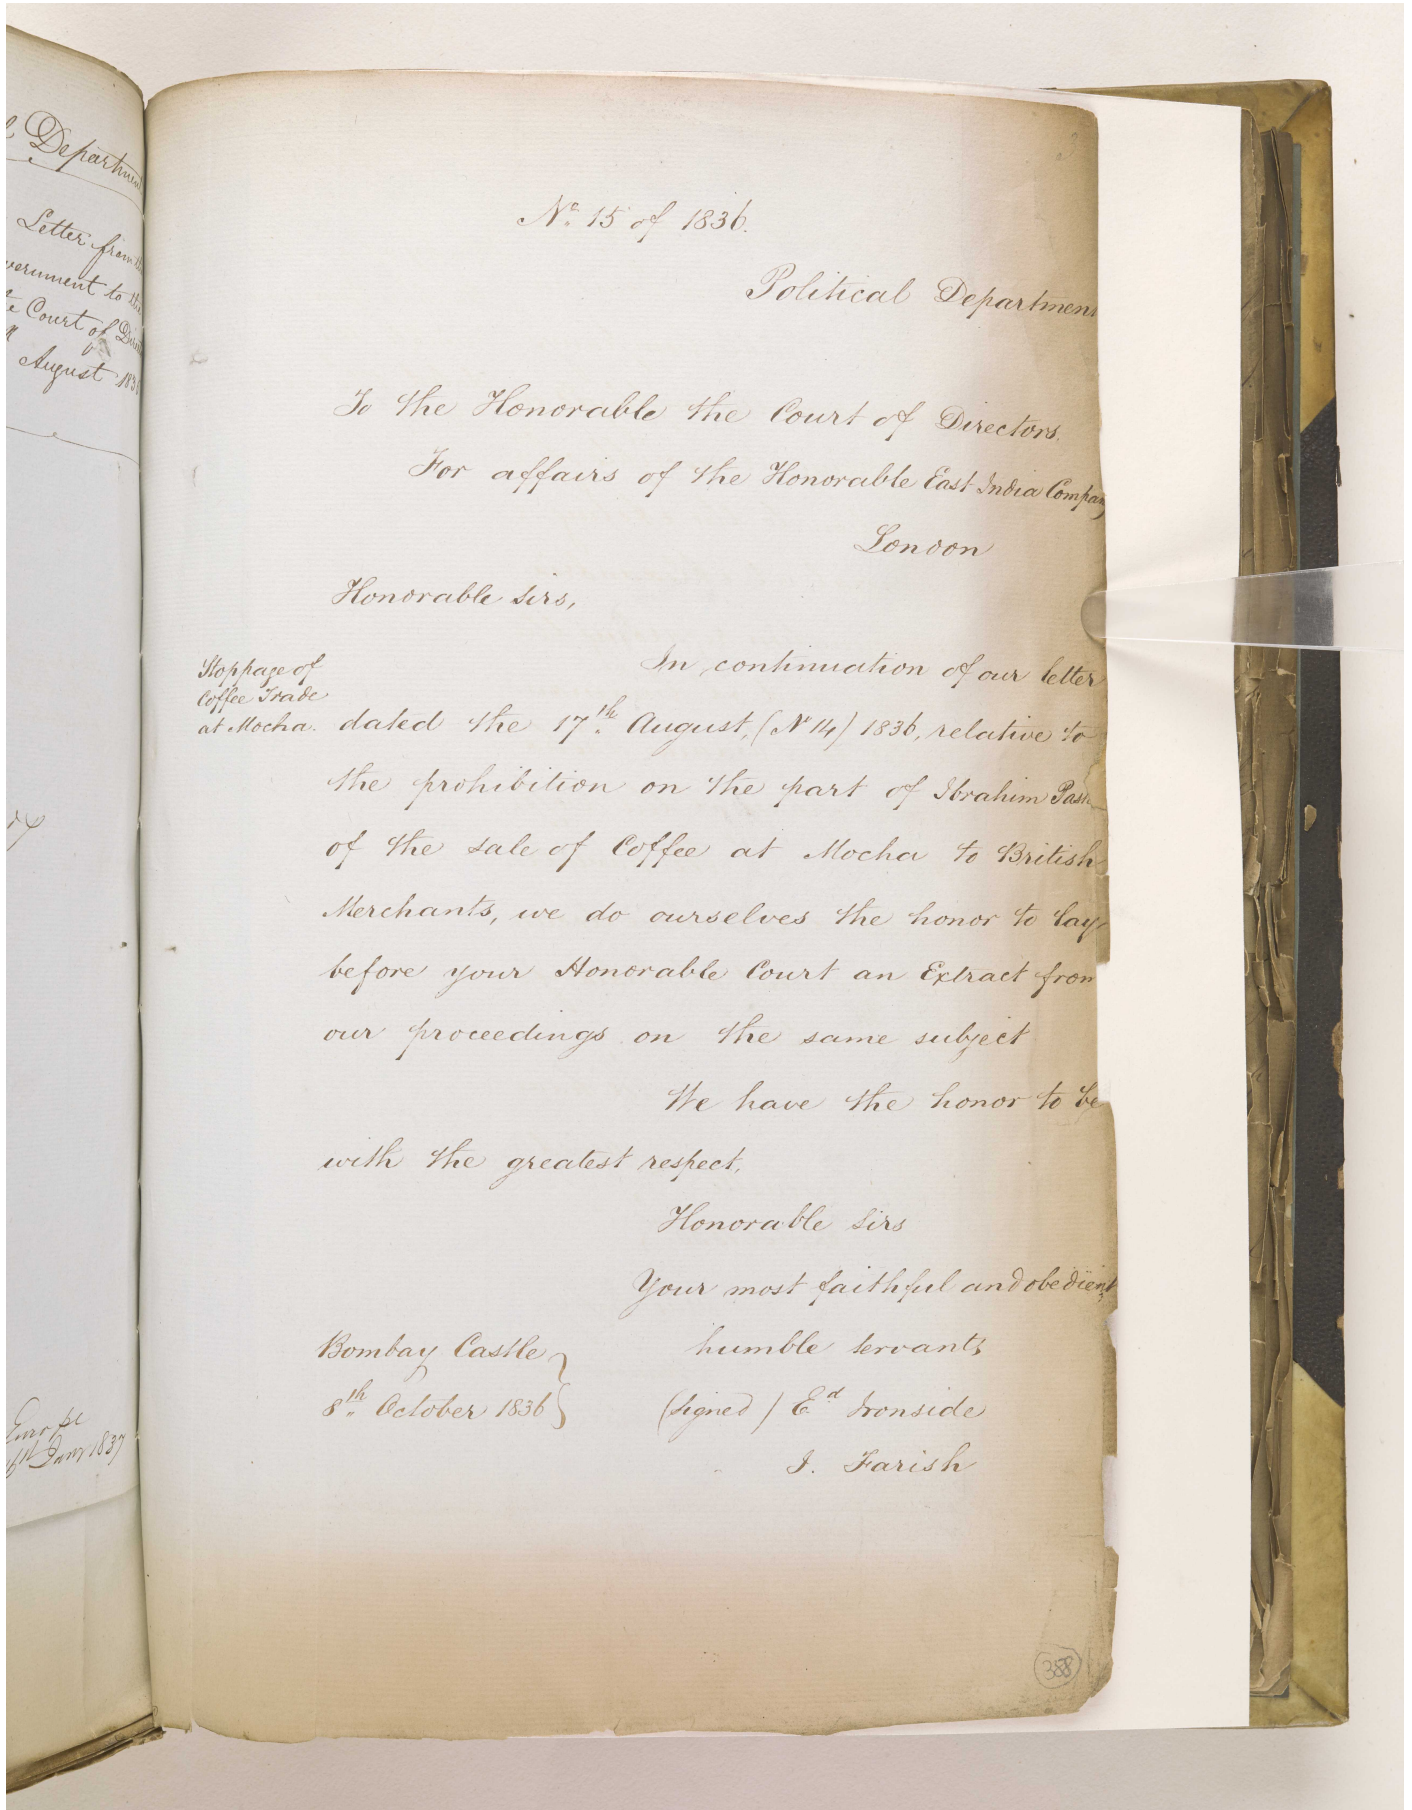 Department
Letter from the
to the
Court of
August
Europe
Jany 1837
No. 15 of 1836.
Political Department
To the Honorable the Court of Directors.
For affairs of the Honorable East India Company
London
Honorable Sirs,
Stoppage of
Coffee Trade
at Mocha.
In continuation of our letter
dated the 17th August, (No 14) 1836, relative to
the prohibition on the part of Ibrahim Pash
of the sale of Coffee at Mocha to British
Merchants, we do ourselves the honor to lay
before your Honorable Court an Extract from
our proceedings on the same subject
We have the honor to be
with the greatest respect,
Honorable Sirs
Your most faithful and obedient
humble servants
Bombay Castle
8th October 1836
(signed) Ed Ironside
J. Farish
388